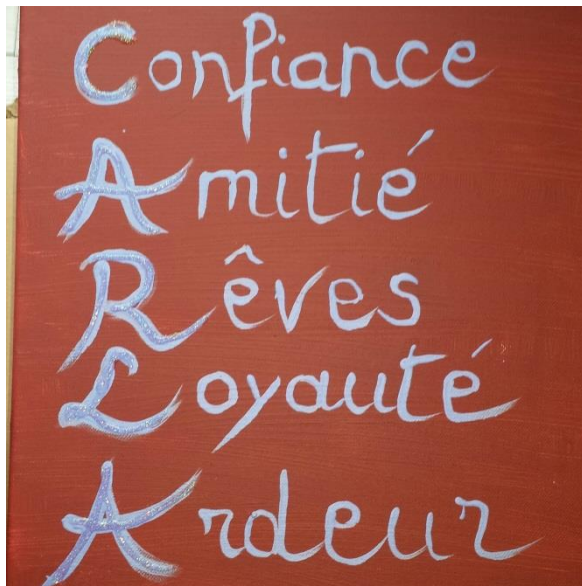 Confiance
Amitié
Rêves
Loyauté
Ardeur